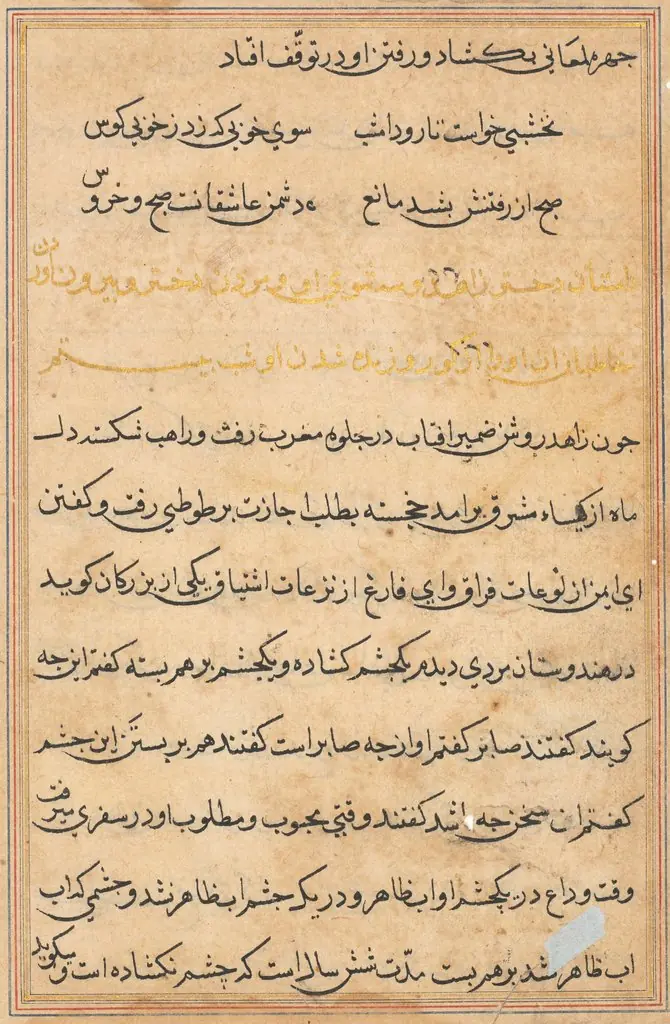 جهره لمعاني بكشاد و رفتن او در توقّف افتاد
نخشبي خواست تا رود امشب سوي خوبي كه زد ز خوبي كوس
صبح از رفتنش بشد مانع دشمن عاشقانت صبح و خروس
داستان دختر زاهد و او و مردن دختر و بيرون آوردن
خاطبان او را از كور و زنده شدن او شب بيستم
جون زاهد روشن ضمير افتاب در جلوه مغرب رفت و راهب شكسته دل
ماه از كليساء مشرق برامد خجسته بطلب اجازت بر طوطي رفت و كفتن
اي ايمن از لوعات فراق و اي فارغ از نزعات اشتياق يكي از بزركان كويد
در هندوستان مردي ديدم يكجشم كشاده و يكجشم بر هم بسته كفتم اين جه
كويند كفتند صابر كفتم او از جه صابر است كفتند هم بر بستن اين جشم
كفتم ان سخن جه باشد كفتند وقتي محبوب و مطلوب او در سفري ميرفت
وقت وداع در يكجشم او اب ظاهر و در يك جشم اب ظاهر نشد و جشمي كداب
اب ظاهر شد بر هم بست مدّت شش سال است كه چشم نكشاده است و ميكويد